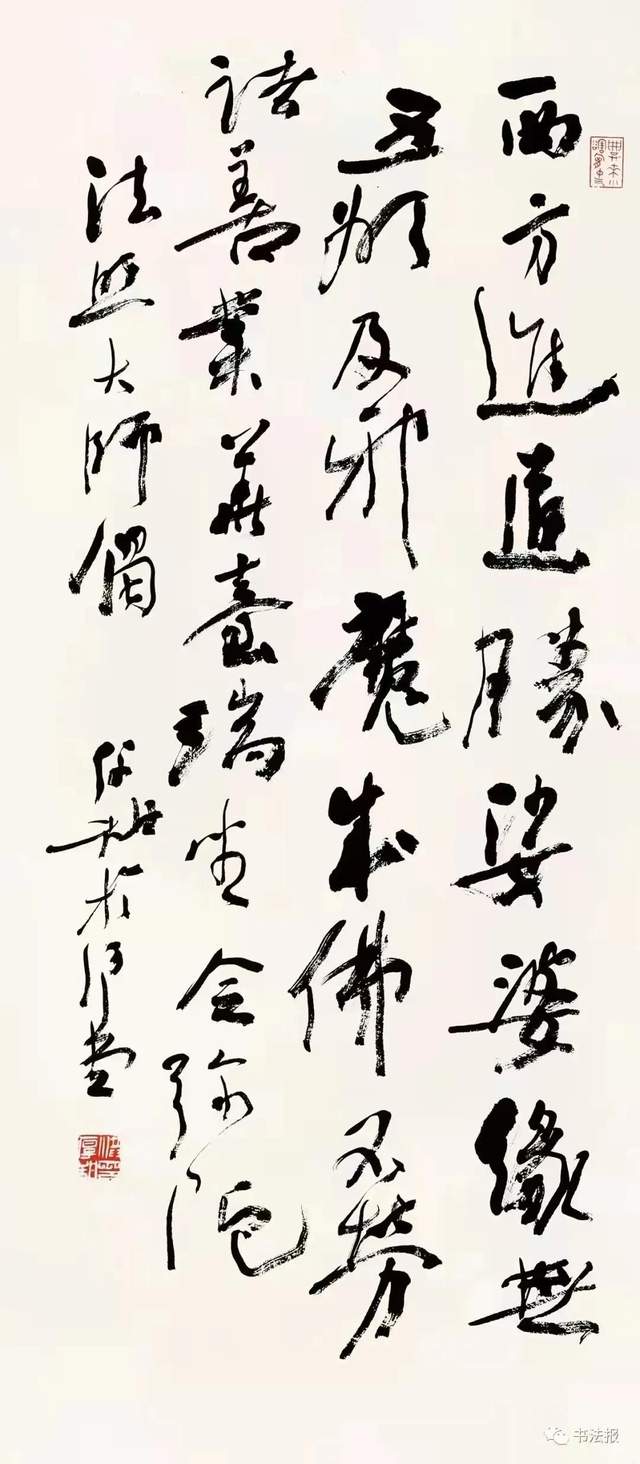 西方進道勝娑婆緣無
五欲及邪魔成佛不勞
諸善業華臺端坐念彌陀
法照大師偈
书法报